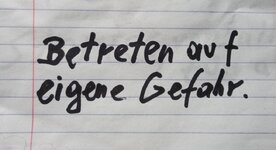 Betreten auf
eigene Gefahr.